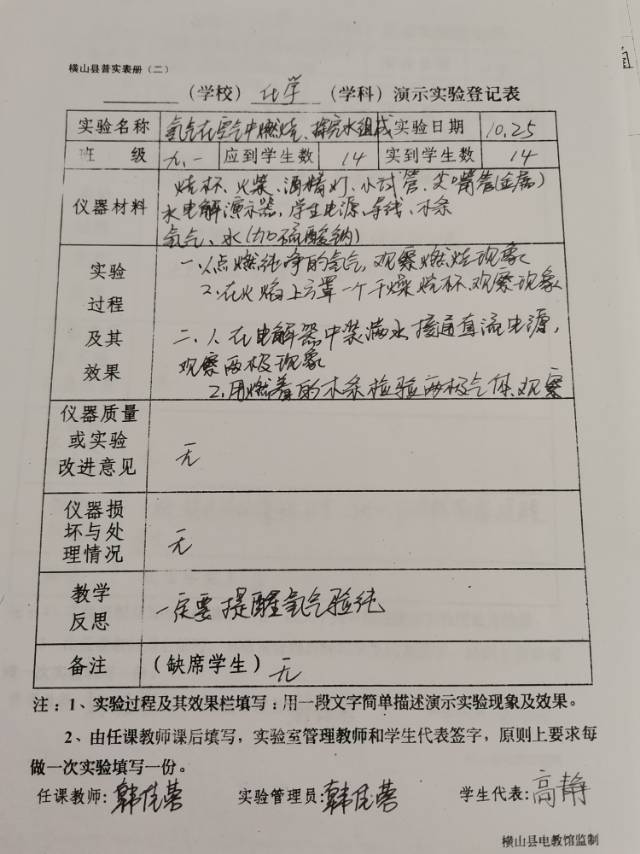 横山县普实表册（二）
（学校）化学（学科）演示实验登记表
实验名称 氢气在空气中燃烧、探究水组成 实验日期 10.25
班级 九.一 应到学生数 14 实到学生数 14
仪器材料 烧杯、火柴、酒精灯、小试管、尖嘴管(金属)
水电解演示器、学生电源、导线、木条
氢气、水(加硫酸钠)
实验过程及其效果 一、1.点燃纯净的氢气,观察燃烧现象
2.在火焰上方罩一个干燥烧杯,观察现象
二、1.在电解器中装满水接通直流电源,
观察两极现象
2.用燃着的木条检验两极气体、观察
仪器质量或实验改进意见 无
仪器损坏与处理情况 无
教学反思 一定要提醒氢气验纯
备注 （缺席学生）无
注：1、实验过程及其效果栏填写：用一段文字简单描述演示实验现象及效果。
2、由任课教师课后填写，实验室管理教师和学生代表签字，原则上要求每
做一次实验填写一份。
任课教师：韩佳蓉 实验管理员：韩佳蓉 学生代表：高静
横山县电教馆监制